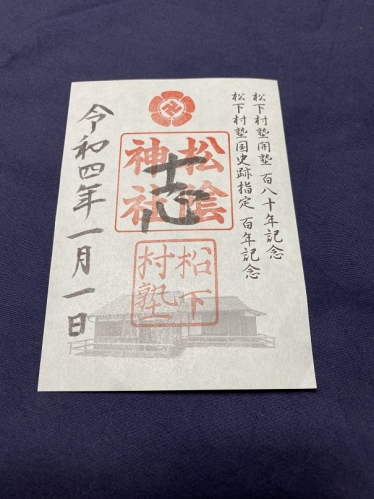 松下村塾開塾 百八十年記念
松下村塾国史跡指定 百年記念
松陰
神社
志
松下
村塾
令和四年一月一日